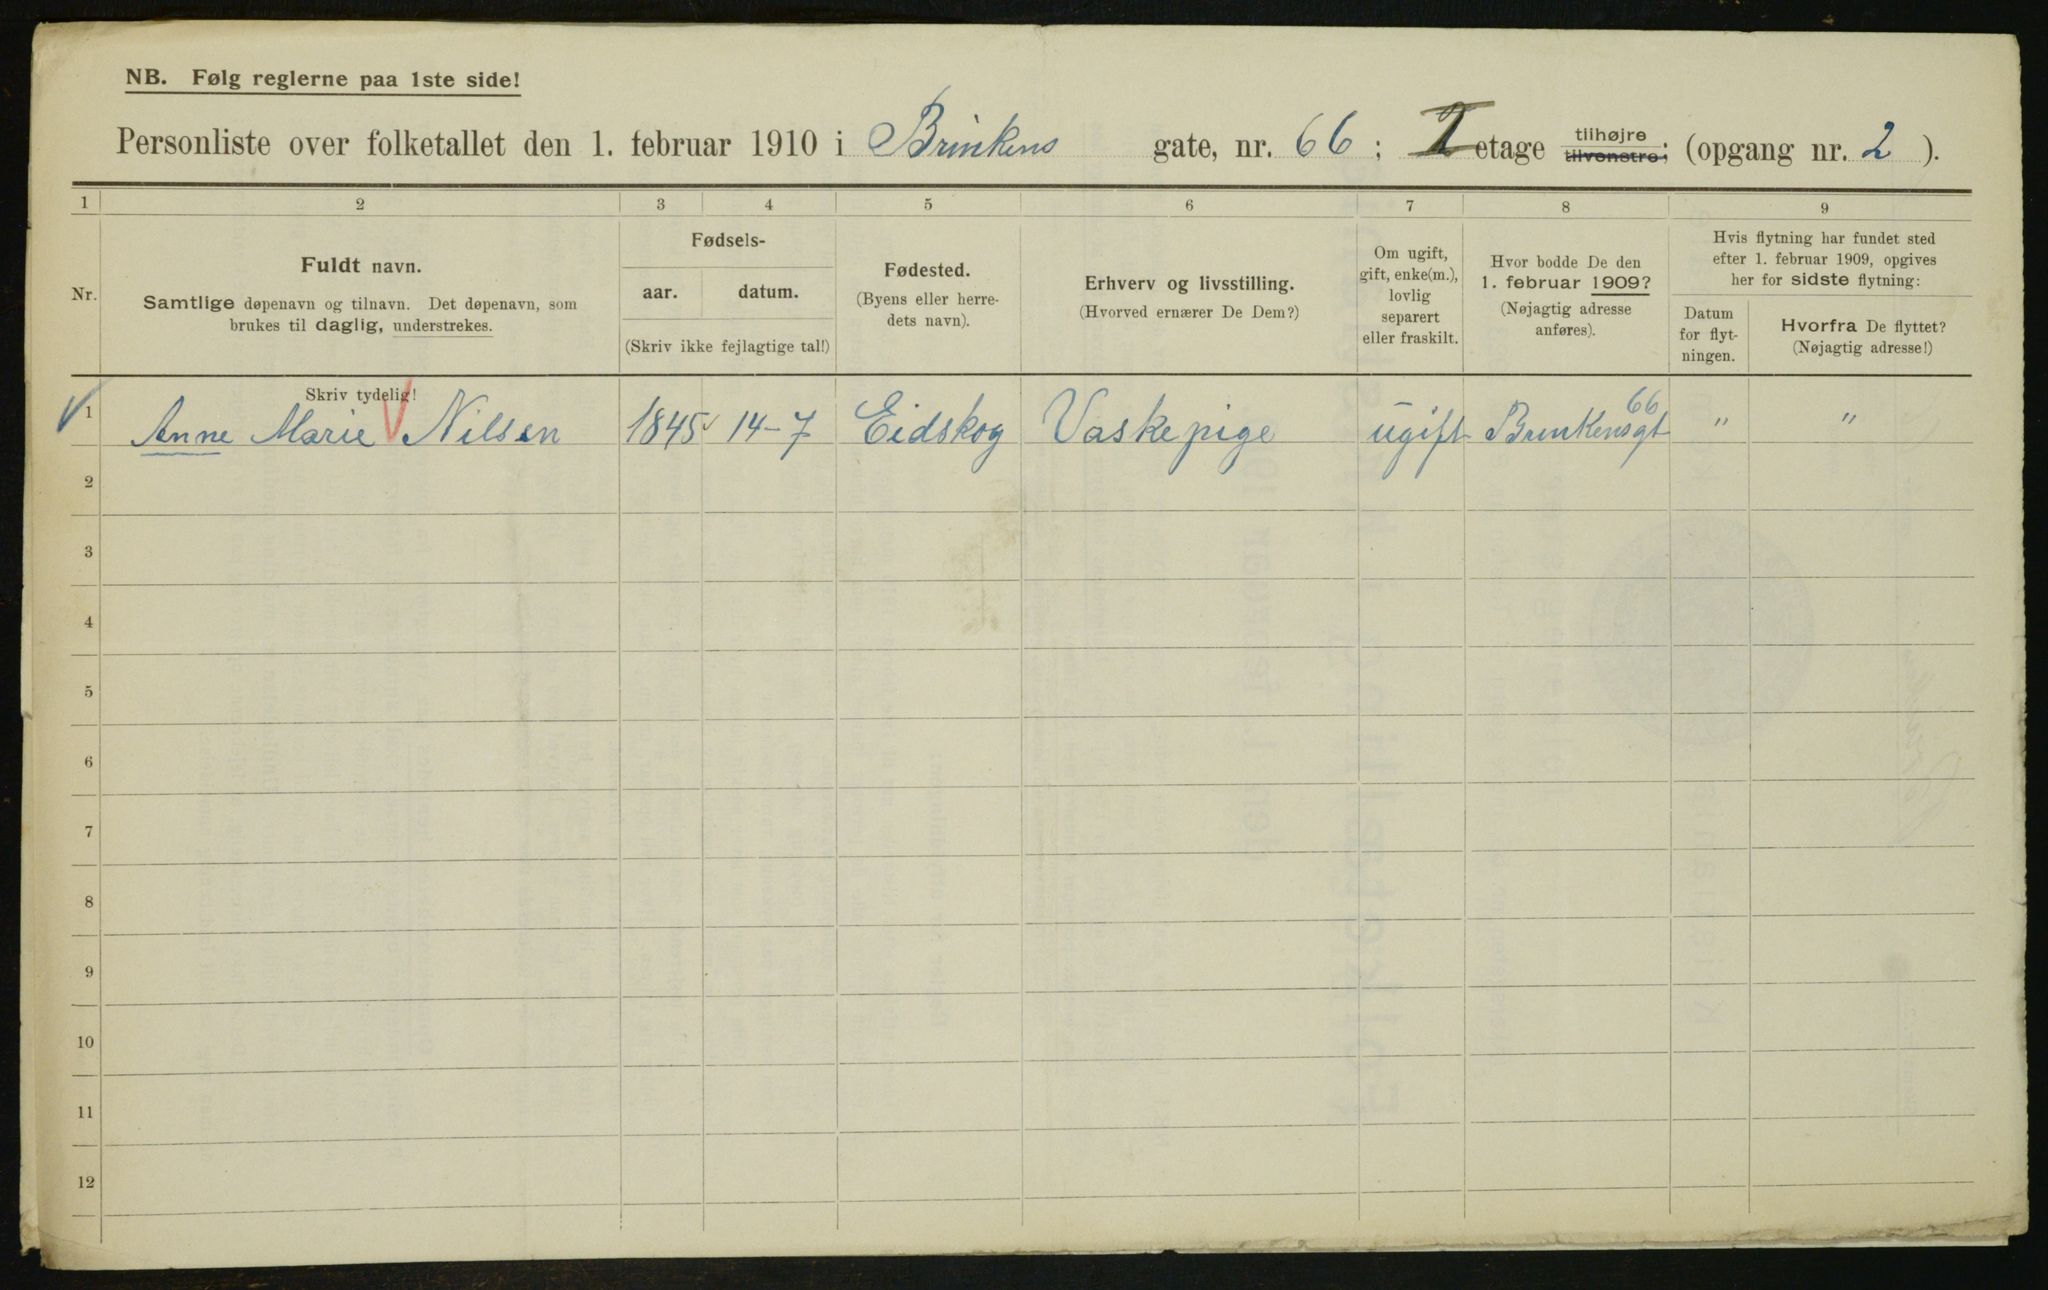 NB. Følg reglerne paa 1ste side!
Personliste over folketallet den 1. februar 1910 i Brinkens gate, nr. 66; etage tilhøjre tilvenstre; (opgang nr. 2).
1 2 3 4 5 6 7 8 9
Nr.
Fuldt navn.
Samtlige døpenavn og tilnavn. Det døpenavn, som
brukes til daglig, understrekes.
Skriv tydelig!
Fødsels-
aar. datum.
(Skriv ikke fejlagtige tal!)
Fødested.
(Byens eller herre-
dets navn).
Erhverv og livsstilling.
(Hvorved ernærer De Dem?)
Om ugift,
gift, enke(m.),
lovlig
separert
eller fraskilt.
Hvor bodde De den
1. februar 1909?
(Nøjagtig adresse
anføres).
Hvis flytning har fundet sted
efter 1. februar 1909, opgives
her for sidste flytning:
Datum
for flyt-
ningen.
Hvorfra De flyttet?
(Nøjagtig adresse!)
1 Anne Marie Nilsen 1845 14-7 Eidskog Vaskepige ugift Brinkensgt 66 " "
2
3
4
5
6
7
8
9
10
11
12